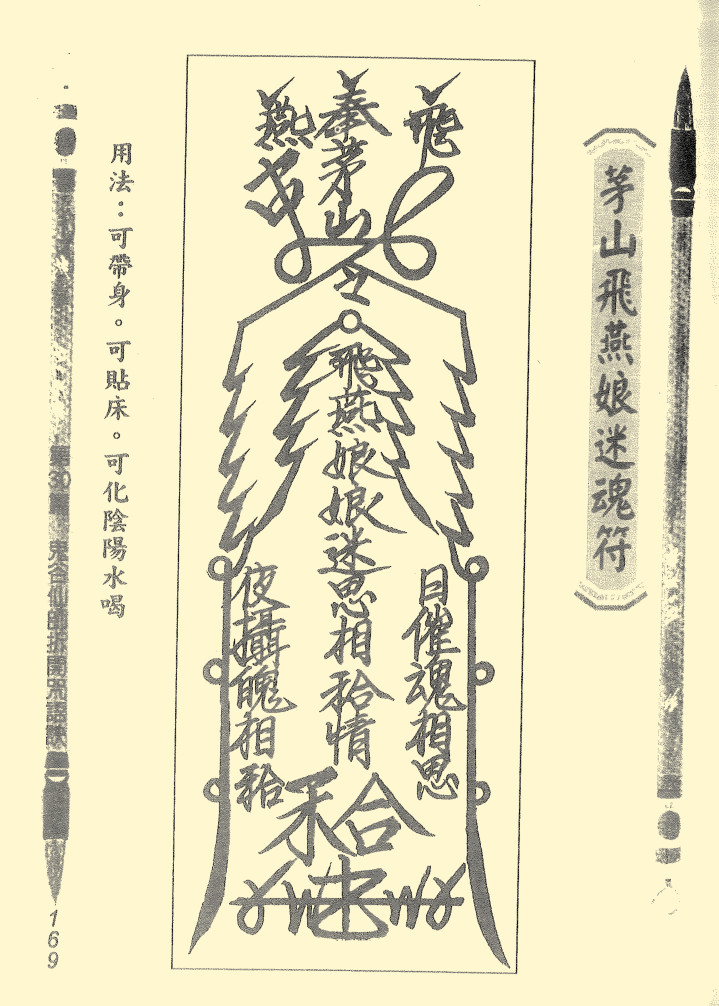 茅山飛燕娘迷魂符
飛
奉茅山
燕
令
飛燕娘娘迷思相和合情
日催魂相思
夜攝魄相和合
和合
用法：可帶身。可貼床。可化陰陽水喝
第30篇 鬼谷仙師拆開咒語訣
169